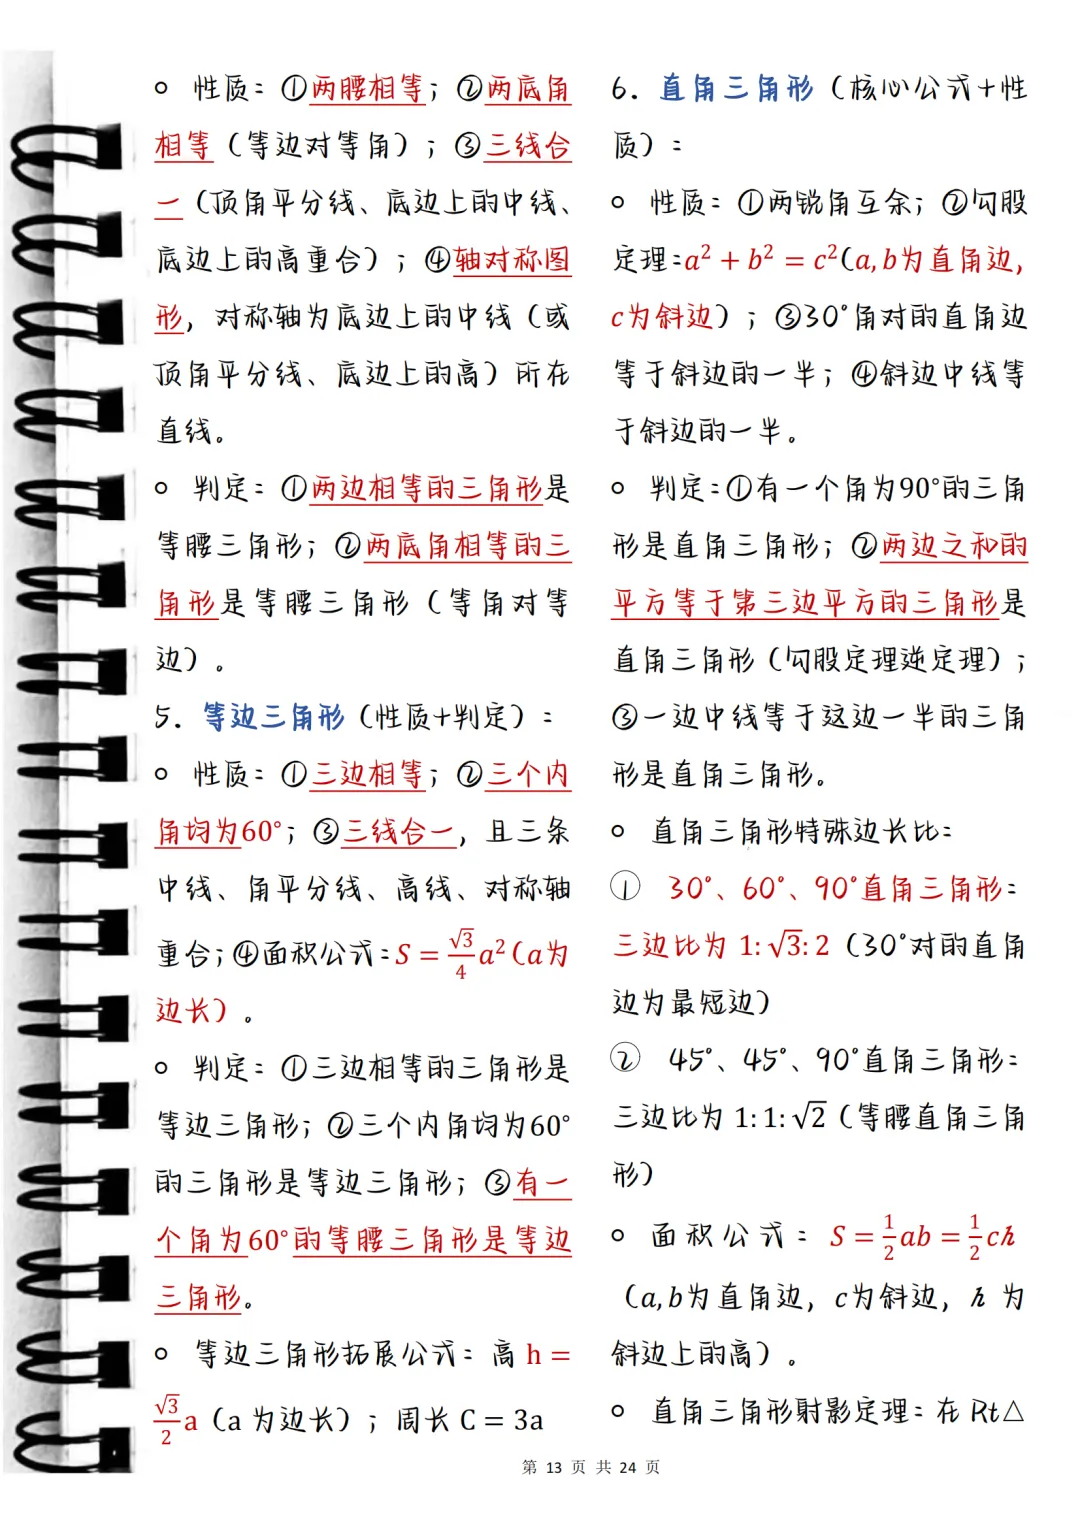 ○ 性质：①两腰相等；②两底角
相等（等边对等角）；③三线合
一（顶角平分线、底边上的中线、
底边上的高重合）；④轴对称图
形，对称轴为底边上的中线（或
顶角平分线、底边上的高）所在
直线。
○ 判定：①两边相等的三角形是
等腰三角形；②两底角相等的三
角形是等腰三角形（等角对等
边）。
5. 等边三角形（性质+判定）：
○ 性质：①三边相等；②三个内
角均为60°；③三线合一，且三条
中线、角平分线、高线、对称轴
重合；④面积公式：S = √3/4 a²（a为
边长）。
○ 判定：①三边相等的三角形是
等边三角形；②三个内角均为60°
的三角形是等边三角形；③有一
个角为60°的等腰三角形是等边
三角形。
○ 等边三角形拓展公式：高 h =
√3/2 a（a 为边长）；周长 C = 3a
6. 直角三角形（核心公式+性
质）：
○ 性质：①两锐角互余；②勾股
定理：a² + b² = c²（a, b为直角边，
c为斜边）；③30°角对的直角边
等于斜边的一半；④斜边中线等
于斜边的一半。
○ 判定：①有一个角为90°的三角
形是直角三角形；②两边之和的
平方等于第三边平方的三角形是
直角三角形（勾股定理逆定理）；
③一边中线等于这边一半的三角
形是直角三角形。
○ 直角三角形特殊边长比：
① 30°、60°、90°直角三角形：
三边比为 1: √3: 2（30°对的直角
边为最短边）
② 45°、45°、90°直角三角形：
三边比为 1: 1: √2（等腰直角三角
形）
○ 面积公式：S = 1/2 ab = 1/2 ch
（a, b为直角边，c为斜边，h 为
斜边上的高）。
○ 直角三角形射影定理：在 Rt△
第 13 页 共 24 页